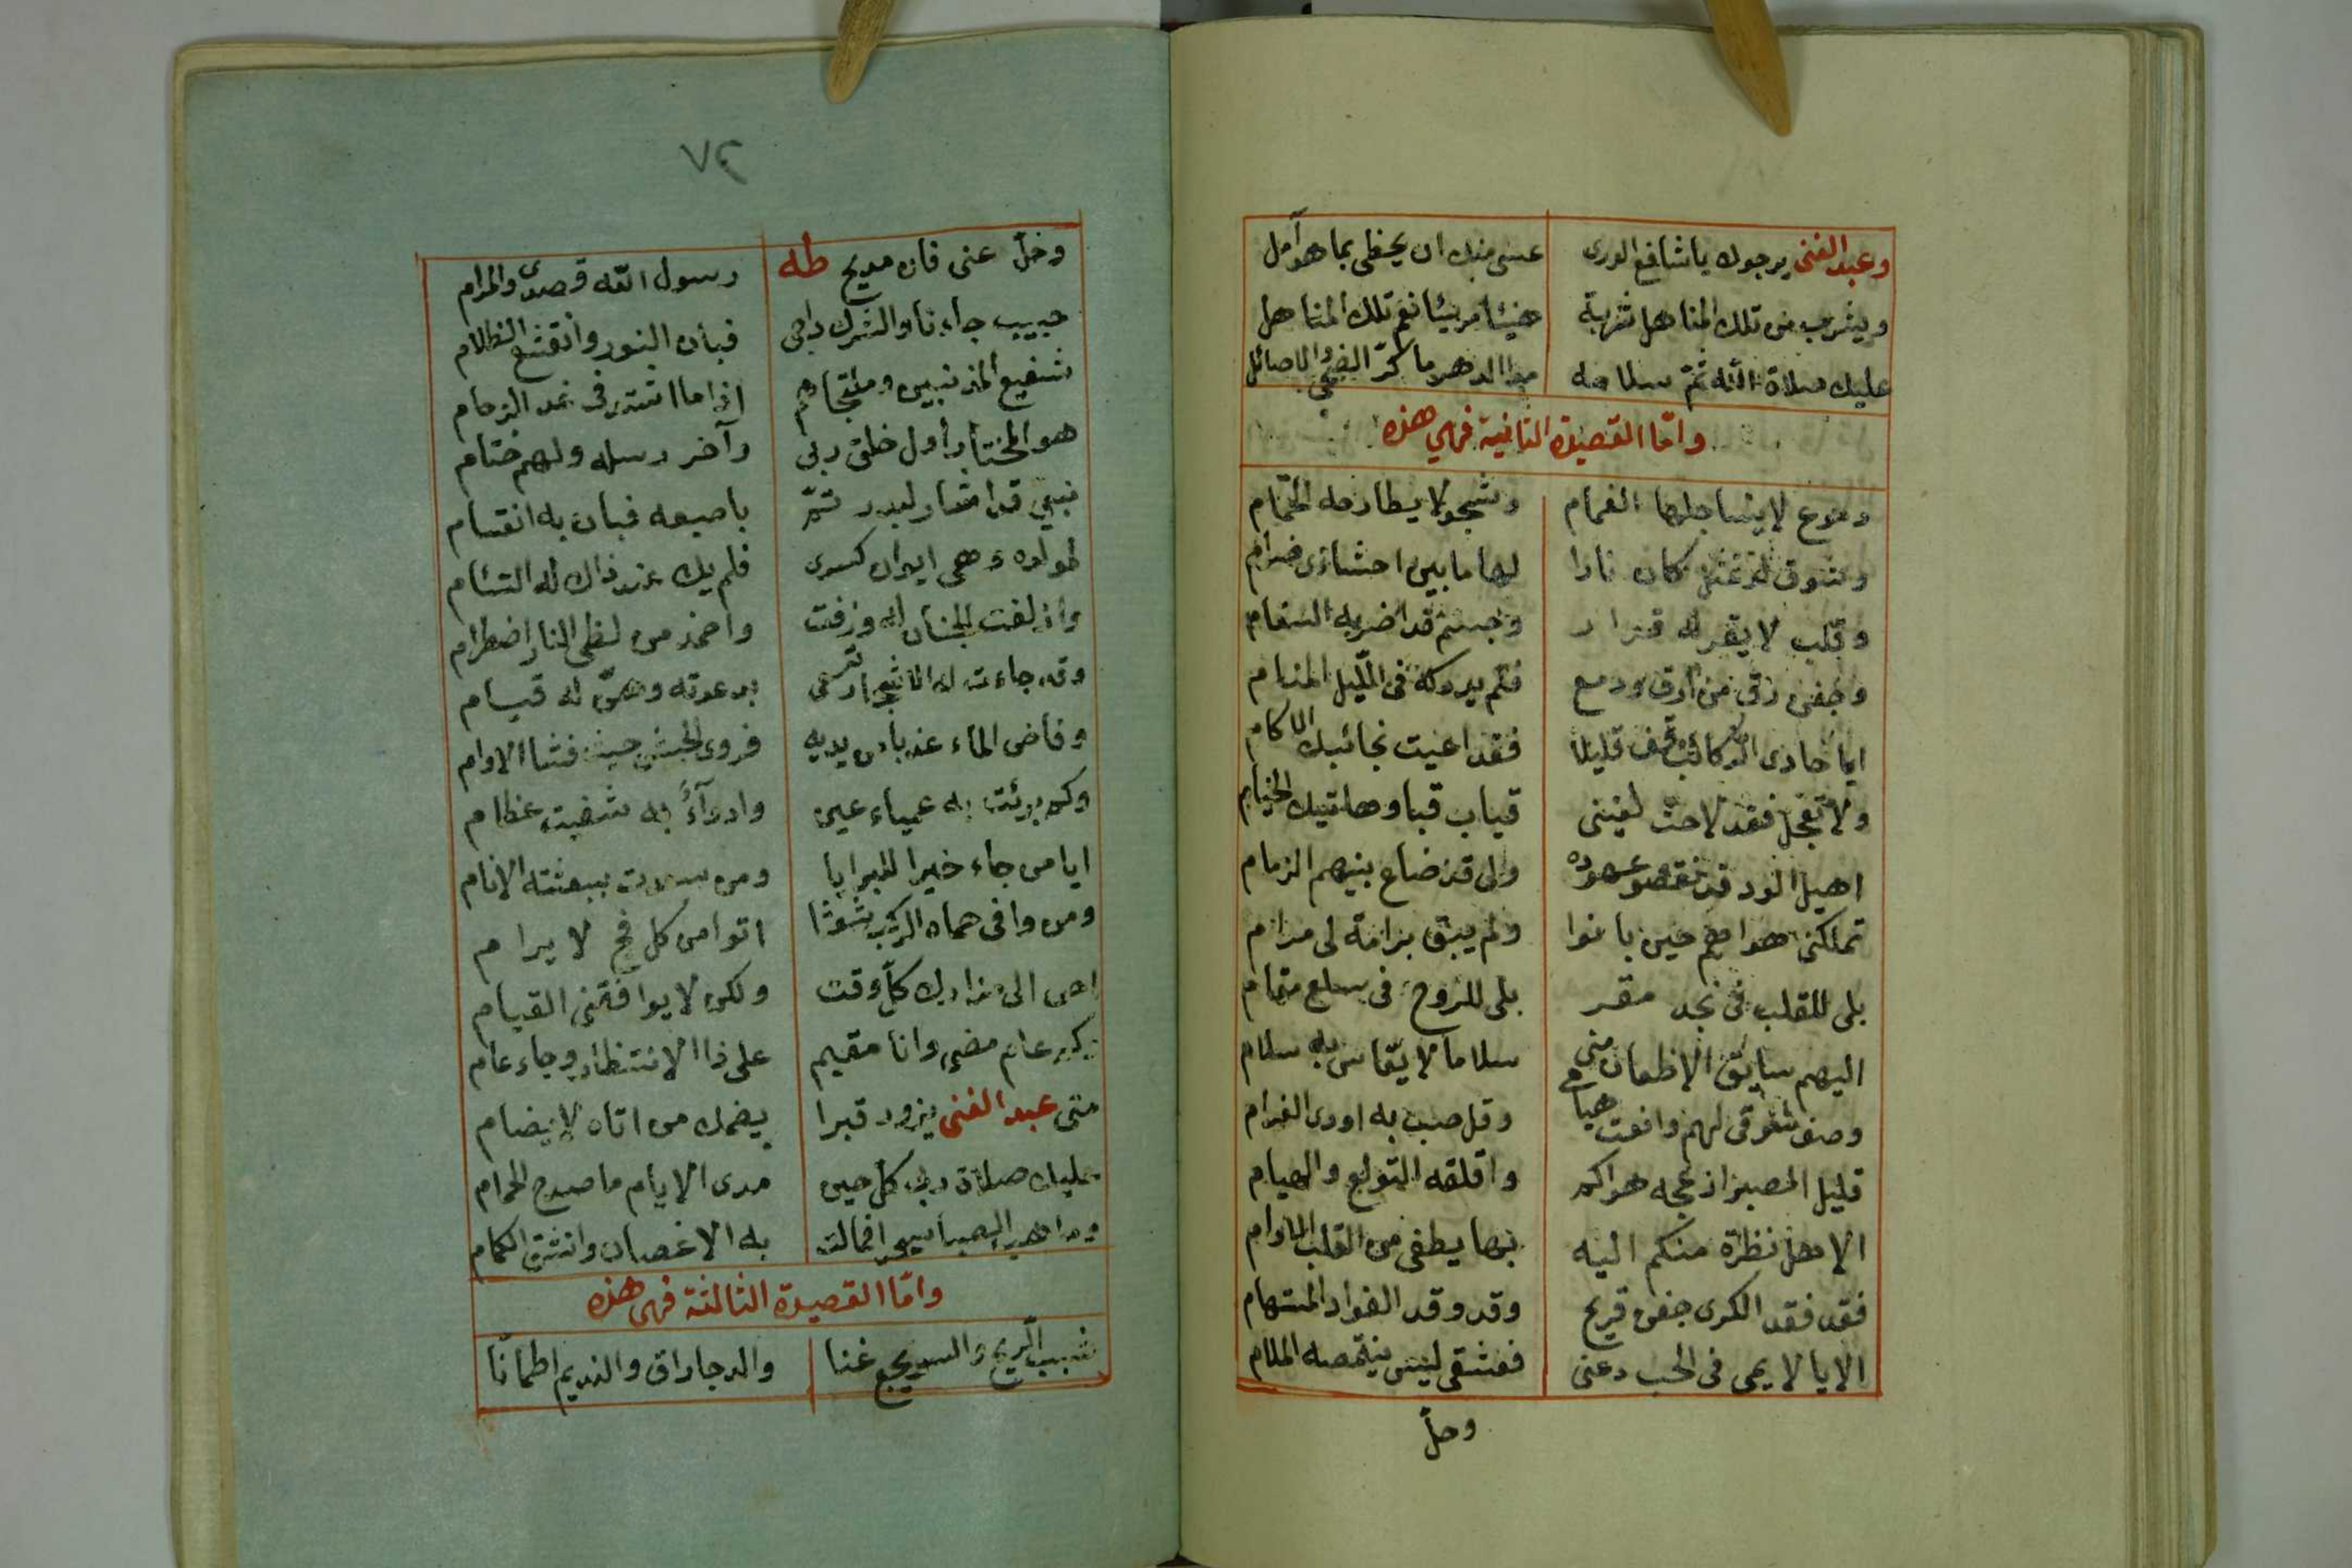 وعبد الغنى يرجوك يا شافع الورى عسى منك ان يحظى بما هو آمل
ويشرب من تلك المناهل شربة هنيئا مريئا نعم تلك المناهل
عليك صلاة الله ثم سلامه مدا الدهر ما كرّ الضحى والاصائل
وامّا القصيدة الثانية فهي هذه
دموع لا يساجلها الغمام وشجو لا يطارحه الحمام
وشوق لو تمثل كان نارا لها ما بين احشاءى ضرام
وقلب لا يقر له قرار وجسم قد اضر به السقام
وجفن رق من أرق ودمع فلم يدركه فى الليل المنام
ايا حادى الركائب قف قليلا فقد اعيت نجائبك الاكام
ولا تعجل فقد لاحت لعينى قباب قبا وهاتيك الخيام
اهيل الود قد نقضو عهوده ولى قد ضاع بينهم الزمام
تملكنى هواهم حين بانوا ولم يبق برامة لى مرام
بلى للقلب فى نجد مقر بلى للروح فى سلع مقام
اليهم سايق الاظعان منى سلاما لا يقاس به سلام
وصف شوقى لهم وانعت هيامى وقل صب به اودى الغرام
قليل الصبر ازعجه هواكم واقلقه التولع والهيام
الا هل نظرة منكم اليه بها يطفى من القلب الاوام
فقد فقد الكرى جفن قريح وقد وقد الفواد المستهام
الا يا لايمى فى الحب دعنى فعشقى ليس ينقصه الملام
وخلّ
٦٧
وخلّ عنى فان مديح طه رسول الله قصدى والمرام
حبيب جاءنا والشرك داجى فبان النور وانقشع الظلام
شفيع المذنبين وملتجاهم اذا ما اشتد فى غد الزحام
هو المختار اول خلق ربى وآخر رسله ولهم ختام
نبيى قد اشار لبدر تمّ باصبعه فبان به انقسام
لمولده وهى ايوان كسرى فلم يك عند ذاك له التئام
وازلفت الجنان له وزفت واخمد من لظى النار اضطرام
وقد جاءت له الاشجار تسعى بدعوته وهنّ له قيام
وفاض الماء عذبا من يديه فروى الجيش حيث فشا الاوام
وكم برئت به عمياء عين وادوآءً به شفيت عظام
ايا من جاء خيرا للبرايا ومن سعدت ببعثته الانام
ومن وافى حماه الركب شوقا اتوا من كل فج لا يرام
احن الى مزارك كلّ وقت ولكن لا يوافقنى القيام
وكم عام مضى وانا مقيم على ذا الانتظار وجاء عام
متى عبد الغنى يزور قبرا يضمك من اتاه لا يضام
عليك صلاة ربى كل حين مدى الايام ما صدح الحمام
وما هب الصبا سحرا فمالت به الاغصان وانشق الكمام
وامّا القصيدة الثالثة فهى هذه
شبب الريح والسويجع غنا والدجا راق والنديم اطمأنّا